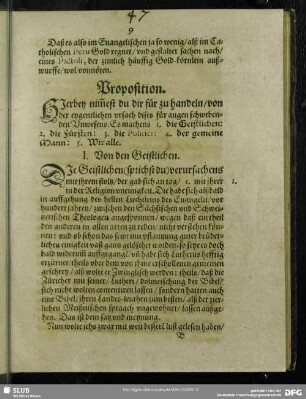 47
9
Daß es also im Euangelischen ja so wenig/ alß im Ca-
tholischen Peru Gold regnet/ vnd gestalter sachen nach/
eines Pactoli, der zimlich häuffig Gold-körnlein auß-
wurffe/ wol vonnöten.
Proposition.
Hierbey nimest du dir für zu handeln/ von
der eygentlichen vrsach dises für augen schweben-
den Vnwesens. Es machens 1. die Geistlichen:
2. die Fürsten: 3. die Politici: 4. der gemeine
Mann: 5. Wir alle.
I. Von den Geistlichen.
Die Geistlichen (sprichst du) verursachens
mit ihrem stoltz/ der gab sich an tag/ 1. mit ihrer
1.
in der Religion vneinigkeit. Die habe sich alsbald
in auffgehung des hellen Liechts deß Euangelii, vor
hundert jahren/ zwischen den Sächsischen vnd Schwei-
tzerischen Theologen angesponnen/ wegen daß ein theil
den anderen in allen arten zu reden/ nicht verstehen kön-
nen: vnd ob schon das fewr mit pflantzung guter brüder-
licher einigkeit vast gantz gelöschet worden/ so seye es doch
bald widerumb auffgangen/
erzürnet/ theils vber dem von ihme erschollenen gemeinen
geschrey/ als wolte er Zwinglisch werden: theils/ daß die
Züricher mit seiner/ Luthers/ dolmetschung der Bibel/
sich nicht wolten contentiren lassen/ sondern hatten auch
eine Bibel/ ihren Landsleuthen zum besten/ als der zier-
lichen Meißnischen sprach vngewohnet/ lassen außge-
hen. Das ist dein satz vnd meynung.
Nun wolte ichs zwar mit weit besserem lust gelesen haben/
B
SLUB
Wir führen Wissen.